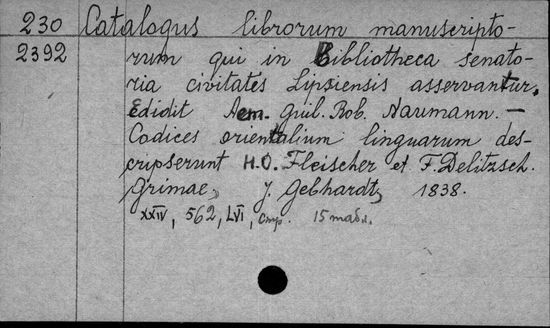 230 Catalogus librorum manuscripto-
2392 rum qui in Bibliotheca senato-
ria civitates Lipsiensis asservantur.
Edidit Aem. Guil. Rob. Naumann. —
Codices orientalium linguarum des-
cripserunt H.O. Fleischer et F. Delitzsch.
Grimae, J. Gebhardt, 1838.
XXIV, 562, LVI, стр. 15 табл.